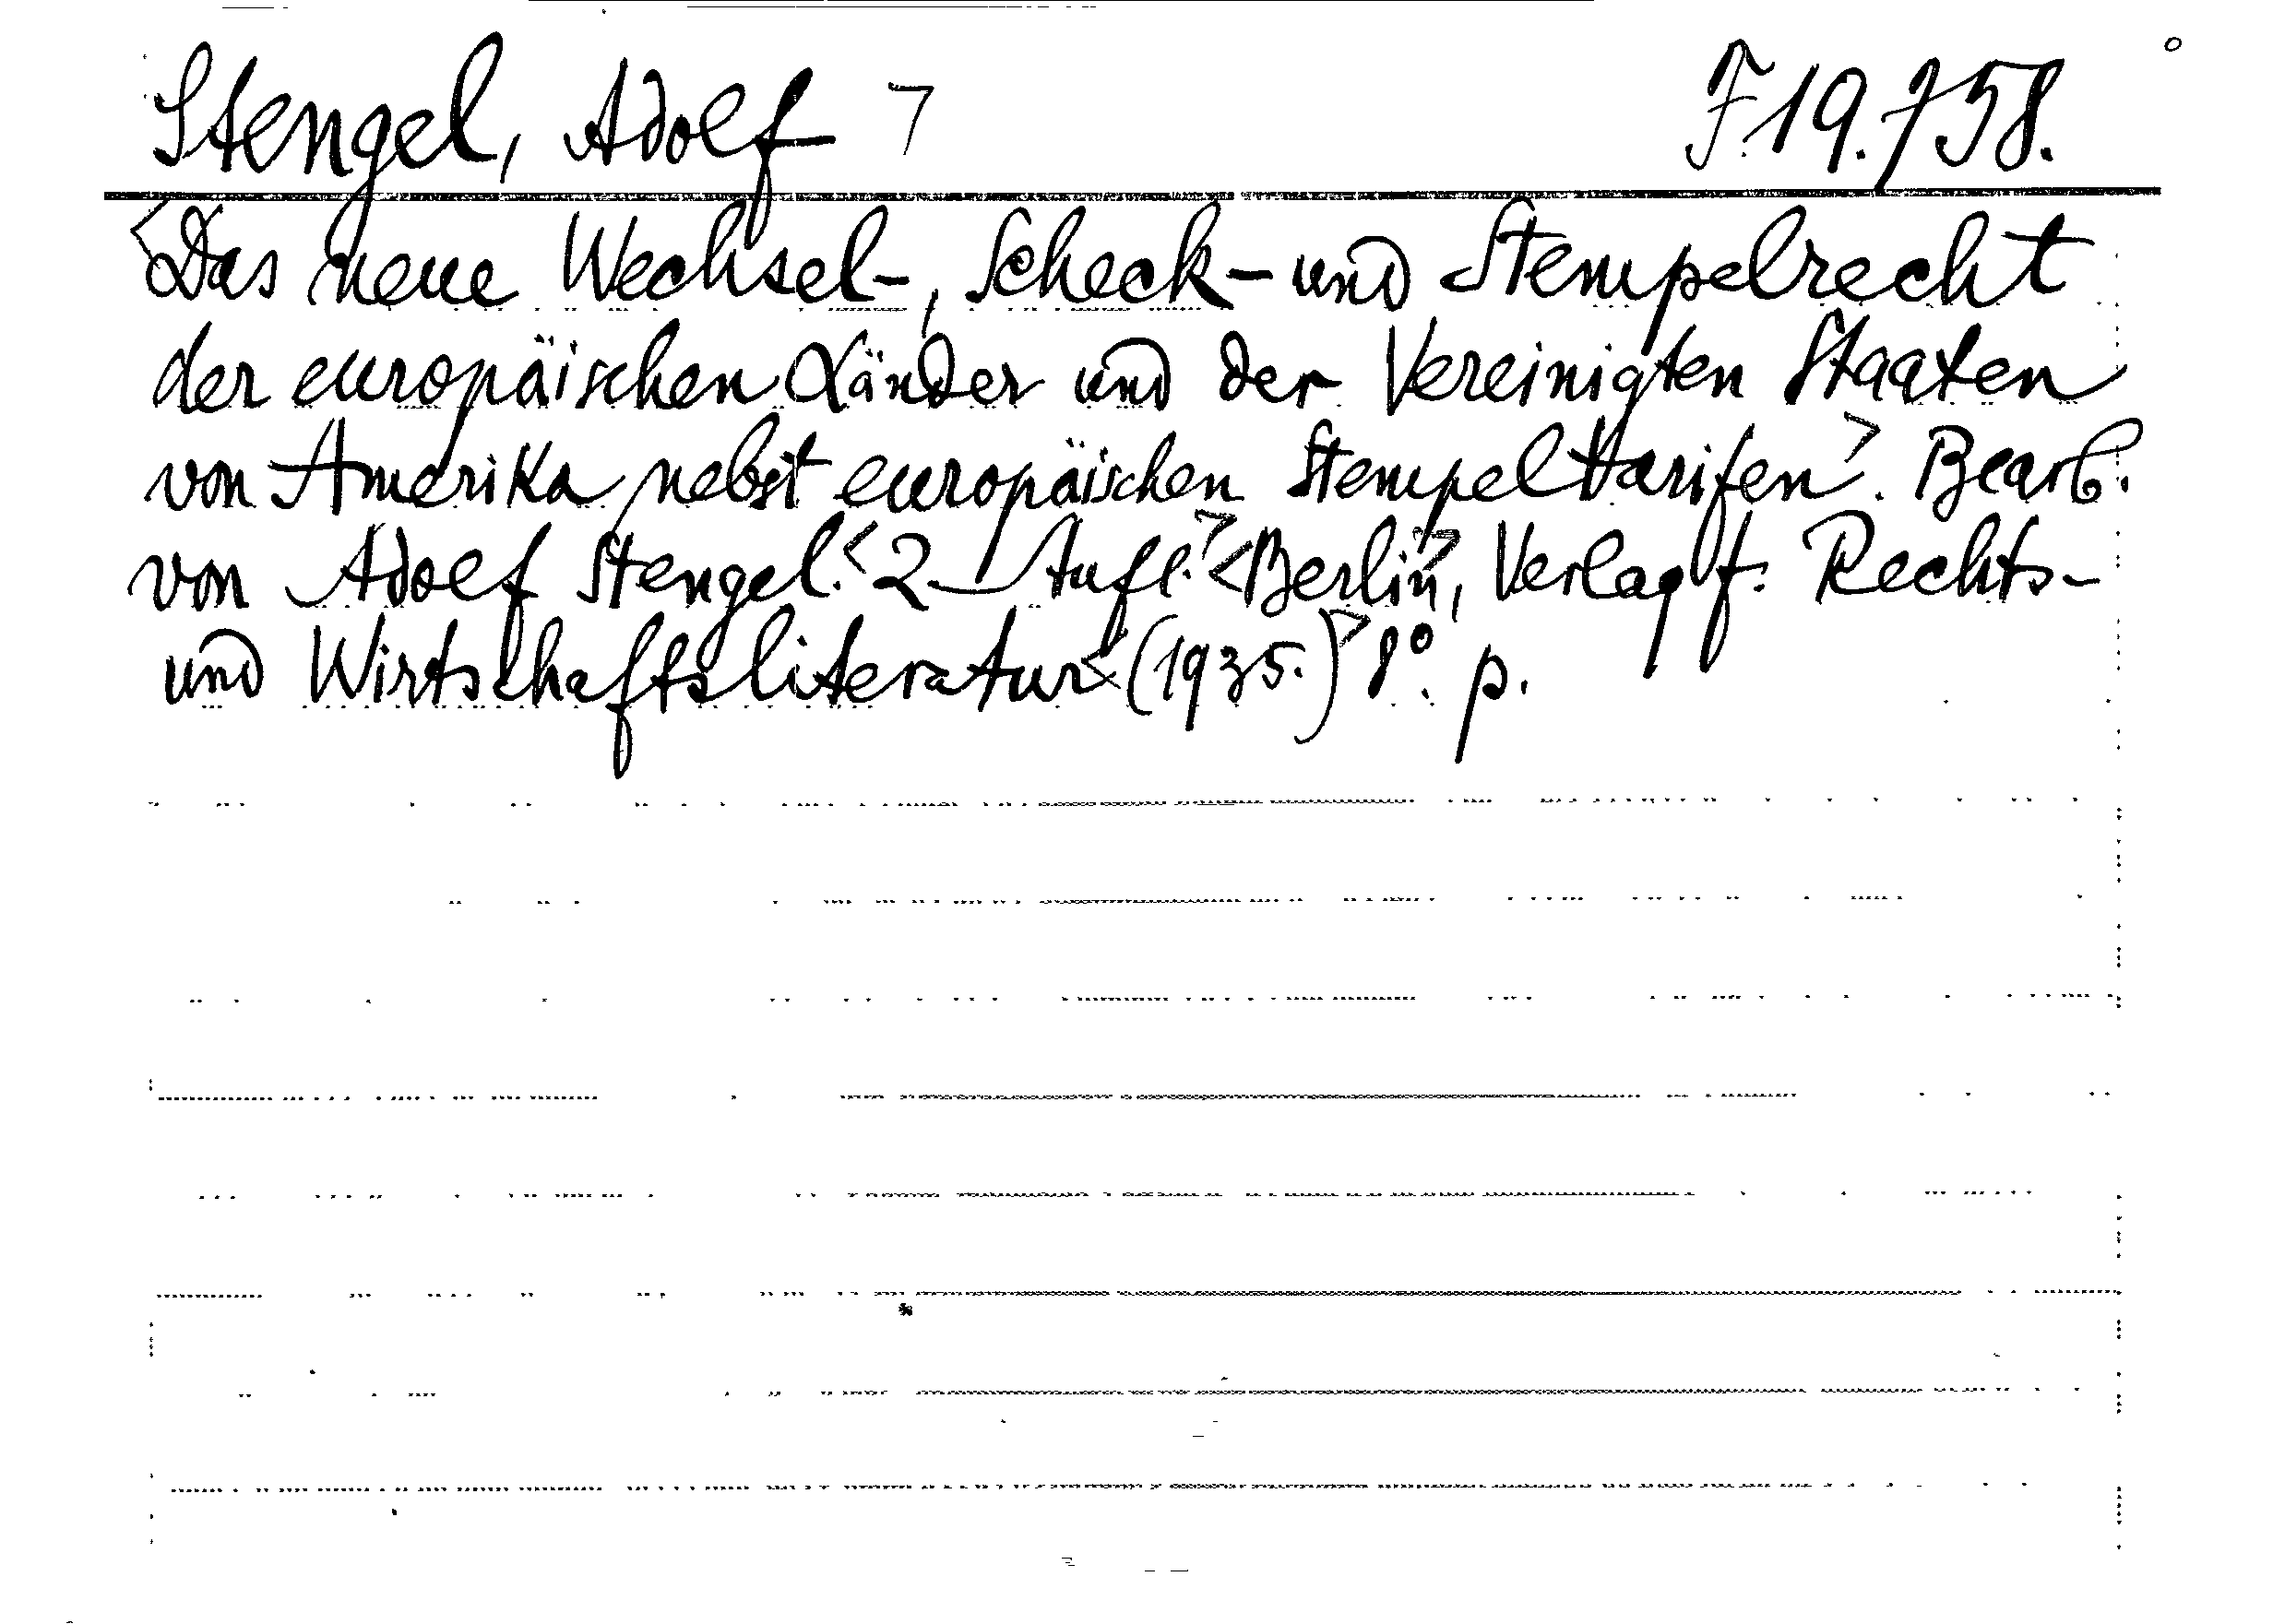 Stengel, Adolf ㄱ F 19.758.
<Das neue Wechsel-, Scheck- und Stempelrecht
der europäischen Länder und der Vereinigten Staaten
von Amerika nebst europäischen Stempeltarifen>. Bearb.
von Adolf Stengel. <2 Aufl.> <Berlin>, Verlag f. Rechts-
und Wirtschaftsliteratur <(1935.)> 8° p.